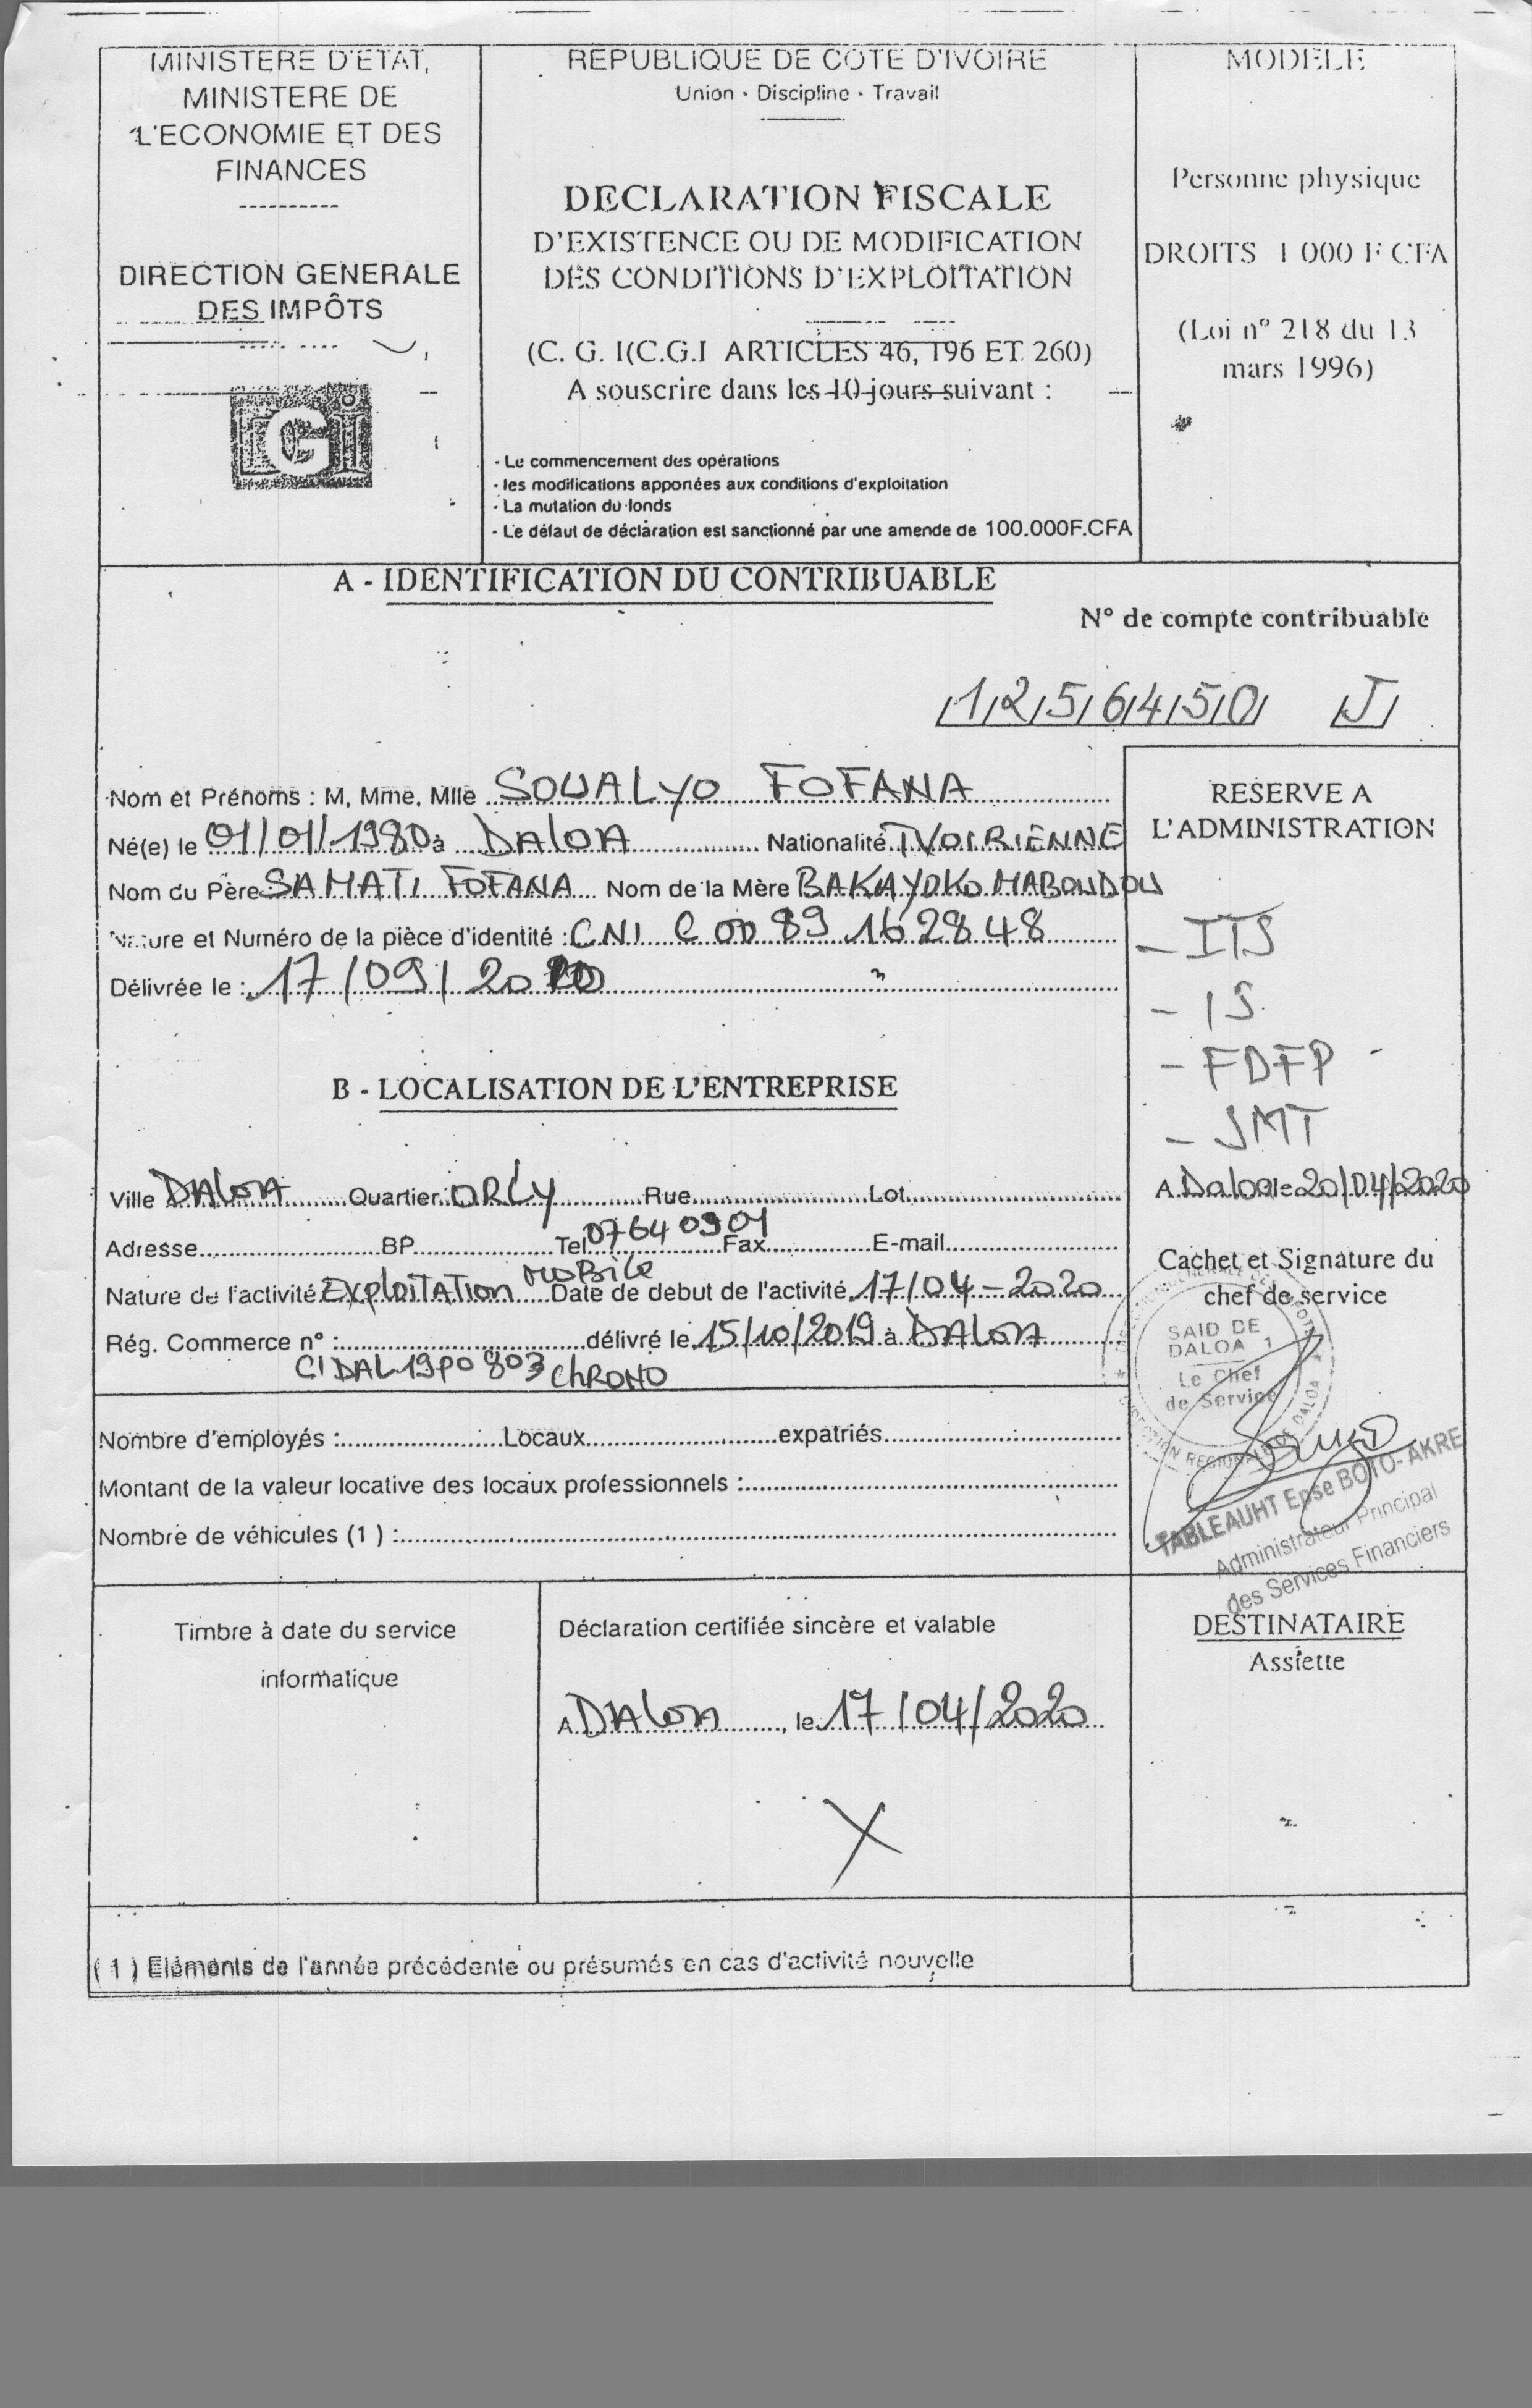 MINISTERE D'ETAT,
MINISTERE DE
L'ECONOMIE ET DES
FINANCES
DIRECTION GENERALE
DES IMPÔTS
REPUBLIQUE DE COTE D'IVOIRE
Union - Discipline - Travail
DECLARATION FISCALE
D'EXISTENCE OU DE MODIFICATION
DES CONDITIONS D'EXPLOITATION
(C. G. I(C.G.I ARTICLES 46, 196 ET 260)
A souscrire dans les 10 jours suivant :
- Le commencement des opérations
- les modifications apportées aux conditions d'exploitation
- La mutation du fonds
- Le défaut de déclaration est sanctionné par une amende de 100.000F.CFA
MODELE
Personne physique
DROITS 1 000 F CFA
(Loi n° 218 du 13
mars 1996)
A - IDENTIFICATION DU CONTRIBUABLE
N° de compte contribuable
1256450 J
Nom et Prénoms : M, Mme, Mlle SOUALYO FOFANA
Né(e) le 01/01/1980 à DALOA Nationalité IVOIRIENNE
Nom du Père SAMATI FOFANA Nom de la Mère BAKAYOKO MABOUDOU
Nature et Numéro de la pièce d'identité : CNI C 0089 162848
Délivrée le : 17/09/20
RESERVE A
L'ADMINISTRATION
- ITS
- IS
- FDFP
- SMT
A Daloa le 20/04/2020
Cachet et Signature du
chef de service
SAID DE
DALOA 1
Le Chef
de Service
TABLEAUHT Epse BOTO-AKRE
Administrateur Principal
des Services Financiers
B - LOCALISATION DE L'ENTREPRISE
Ville DALOA Quartier ORLY Rue Lot
Adresse BP Tel 07640901 Fax E-mail
Nature de l'activité EXPLOITATION MOBILE Date de debut de l'activité 17/04-2020
Rég. Commerce n° : délivré le 15/10/2019 à DALOA
CI DAL 19P0 803 CHRONO
Nombre d'employés : Locaux expatriés
Montant de la valeur locative des locaux professionnels :
Nombre de véhicules (1) :
Timbre à date du service
informatique
Déclaration certifiée sincère et valable
A DALOA, le 17/04/2020
X
DESTINATAIRE
Assiette
(1) Eléments de l'année précédente ou présumés en cas d'activité nouvelle